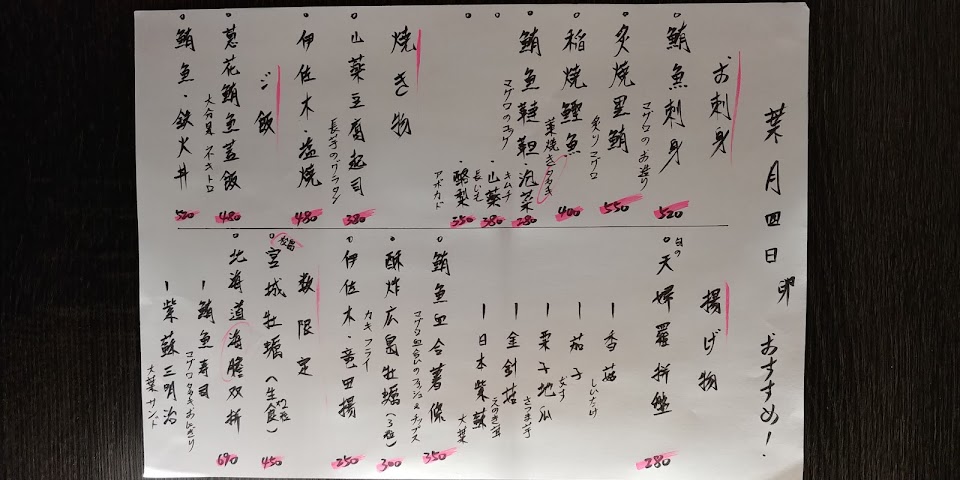 葉月四日 おすすめ!
お刺身
鮪魚刺身 520
マグロのお造り
炙焼黒鮪 550
炙りマグロ
稲焼鰹魚 400
藁焼きタタキ
鮪魚韃靼・泡菜 380
マグロのユッケ
キムチ
・山薬 380
長いも
・酪梨 350
アボカド
焼き物
山薬豆腐起司 380
長芋のグラタン
伊佐木・塩焼 480
飯
葱花鮪魚蓋飯 480
ネギトロ
鮪魚・鉄火丼 520
揚げ物
旬の天婦羅拼盤 280
ー香菇
しいたけ
ー茄子
なす
ー栗子地瓜
さつま芋
ー金針菇
えのき茸
ー日本紫蘇
大葉
鮪魚血合薯條 350
マグロ血合いのフィッシュ&チップス
酥炸広島牡蠣(3粒) 300
カキフライ
伊佐木・竜田揚 250
数限定
宮城牡蠣(生食) 450
2粒
北海道海膽双拼 690
ー鮪魚寿司
マグロタタキおにぎり
ー紫蘇三明治
大葉サンド